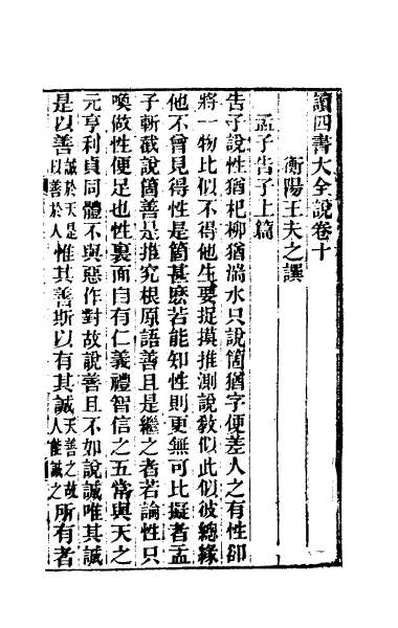 讀四書大全說卷十
衡陽王夫之譔
孟子告子上篇
告子說性猶杞柳猶湍水只說箇猶字便差人之有性卻
將一物比似不得他生要捉摸推測說教似此似彼總緣
他不曾見得性是箇甚麼若能知性則更無可比擬者孟
子斬截說箇善是推究根原語善且是繼之者若論性只
喚做性便足也性裏面自有仁義禮智信之五常與天之
元亨利貞同體不與惡作對故說善且不如說誠唯其誠
是以善誠於天是以善於人惟其善斯以有其誠天善之故人能誠之所有者